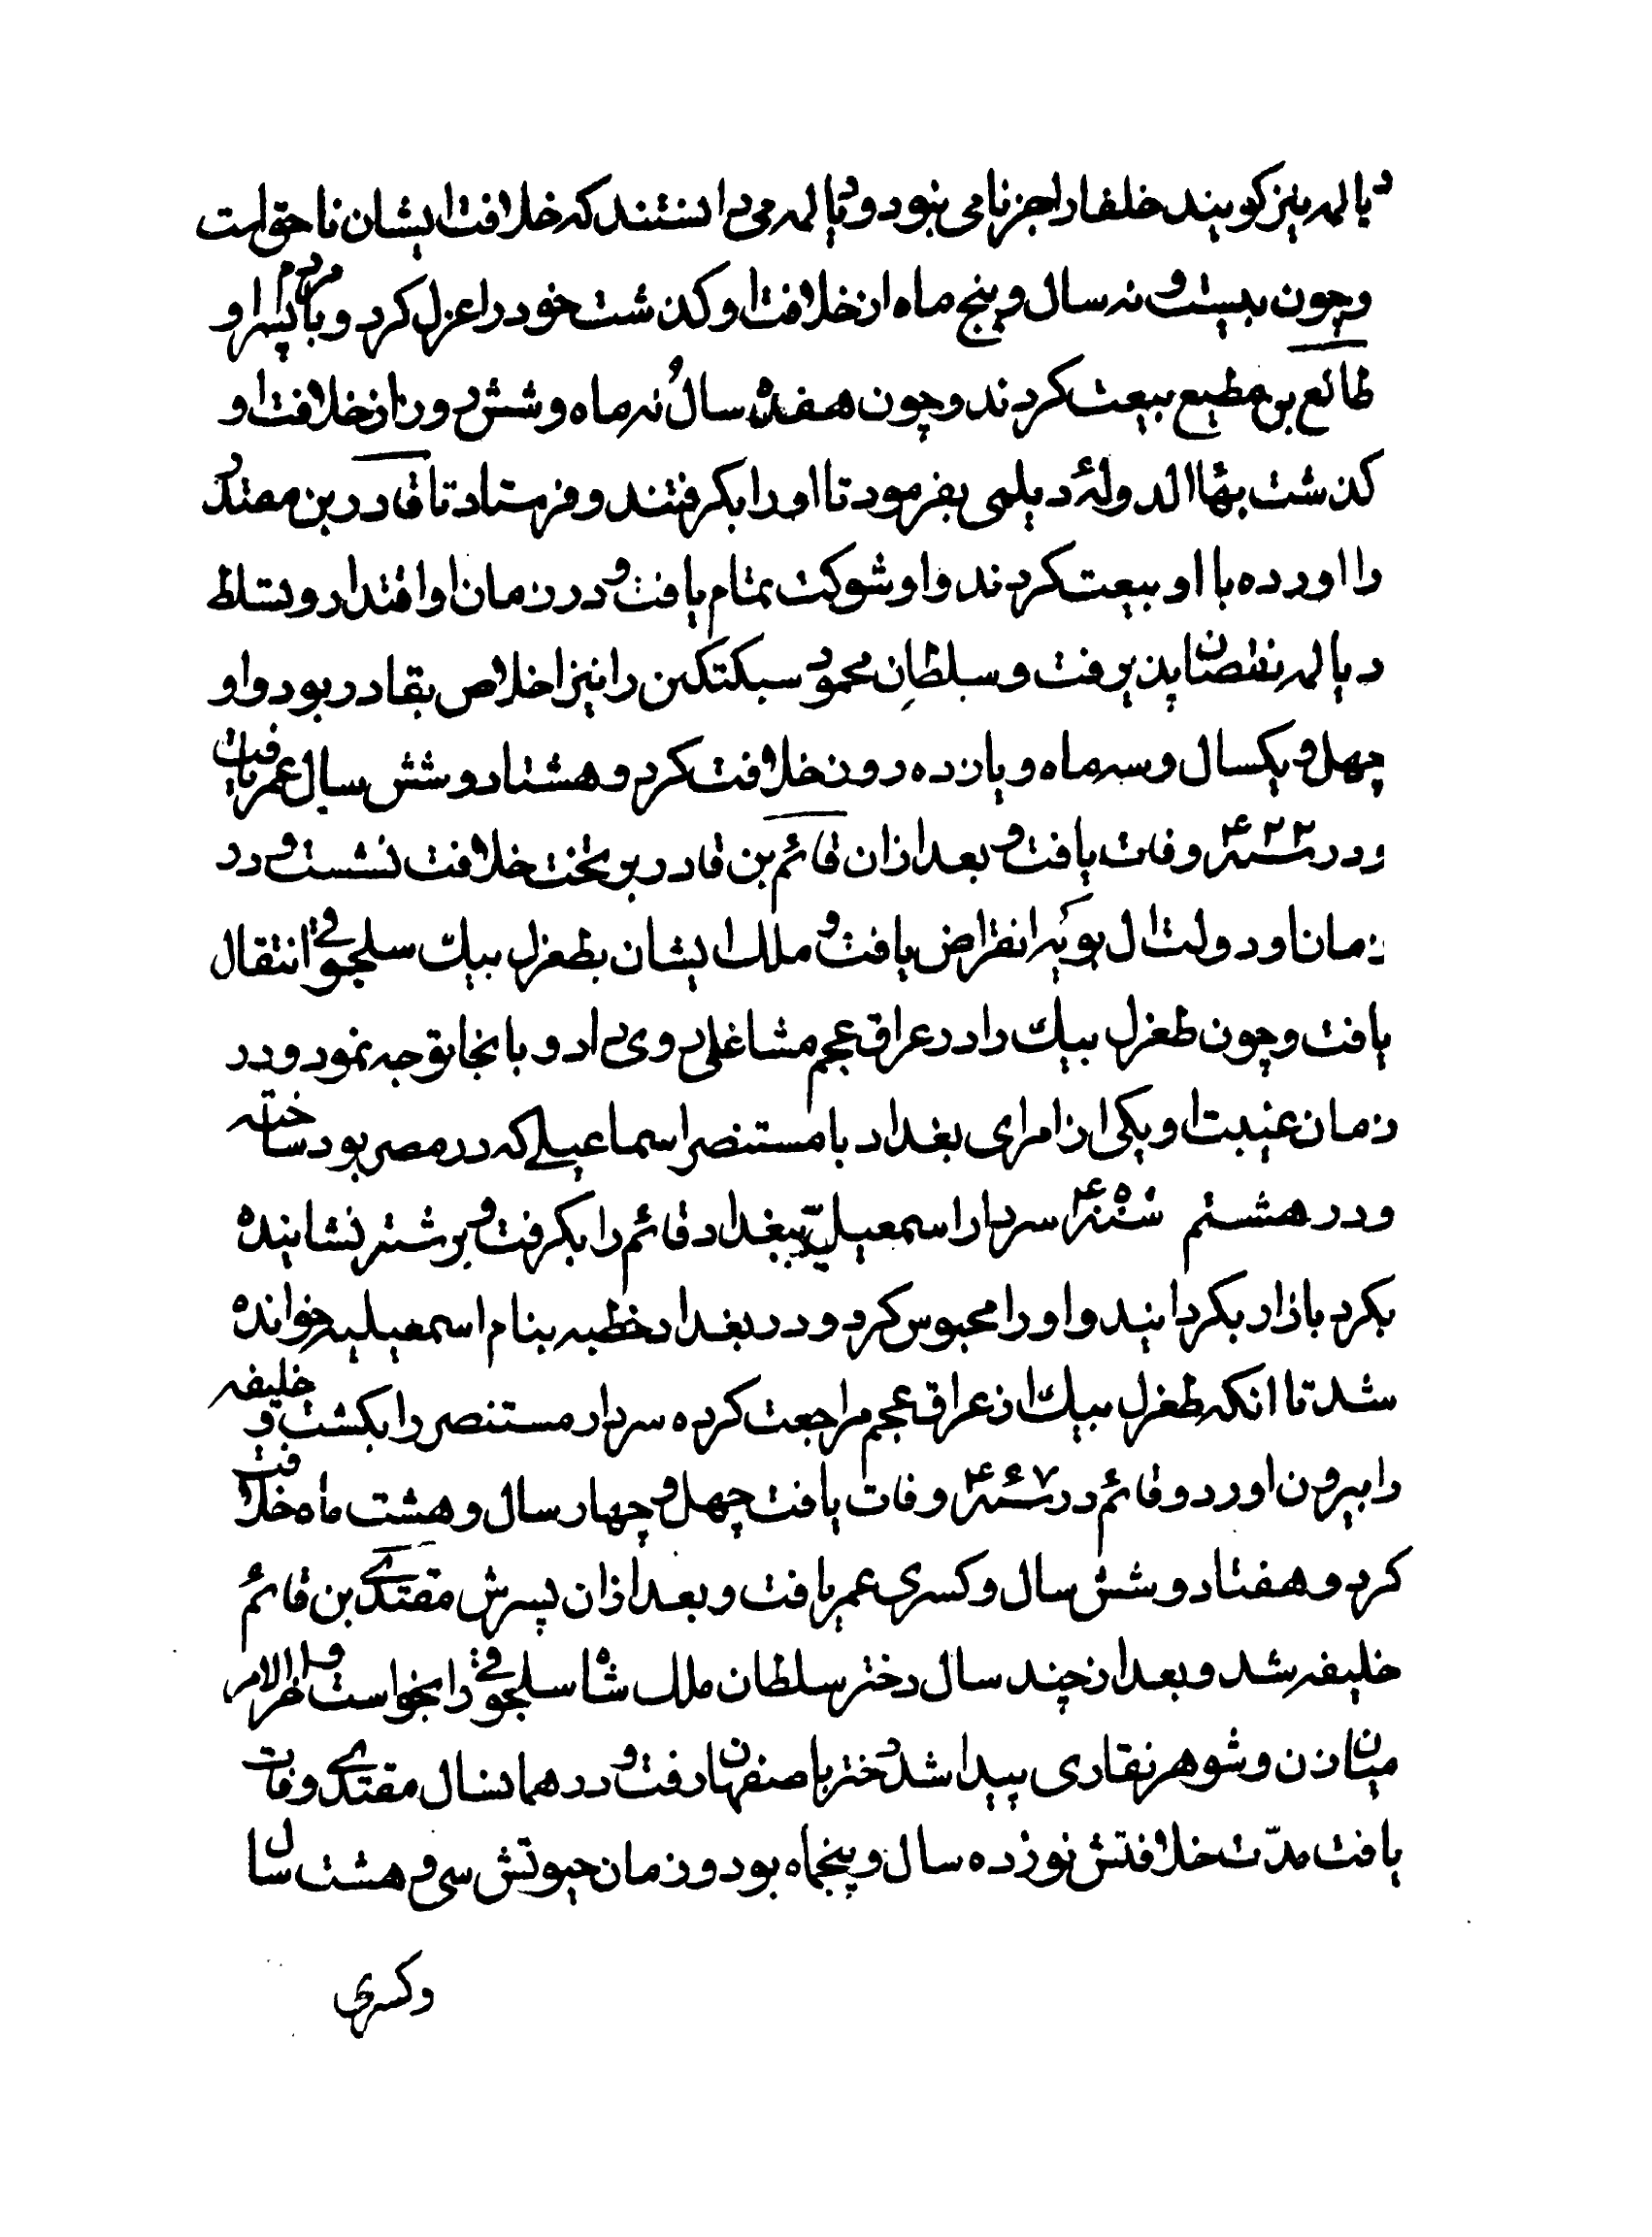 دیالمه نیز کویند خلفا را جز نامی نبود و دیالمه می دانستند که خلافت ایشان ناحق است
و چون بیست و نه سال و پنج ماه از خلافت او کذشت خود را عزل کرد و مردم با پسر او
طائع بن مطیع بیعت کردند و چون هفده سال و نه ماه و شش روز از خلافت او
کذشت بهاالدولهٔ دیلمی بفرمود تا او را بکرفتند و فرستاد تا قادر بن مقتدر
را اورده با او بیعت کردند و او شوکت تمام یافت و در زمان او اقتدار و تسلط
دیالمه نقصان پذیرفت و سلطان محمود سبکتکین را نیز اخلاص بقادر بود و او
چهل و یکسال و سه ماه و یازده روز خلافت کرد و هشتاد و شش سال عمر یافت
و در سنه ۴۲۲ وفات یافت و بعد ازان قائم بن قادر بر تخت خلافت نشست و در
زمان او دولت ال بویه انقراض یافت و ملک ایشان بطغرل بیک سلجوقی انتقال
یافت و چون طغرل بیک را در عراق عجم مشاغلی روی داد و بانجا توجه نمود و در
زمان غیبت او یکی از امرای بغداد با مستنصر اسماعیلی که در مصر بود ساخته
و در هشتم سنه ۴۵۰ سردار اسمعیلیه ببغداد قائم را بکرفت و بر شتر نشانیده
بکرد بازار بکردانیند و او را محبوس کرد و در بغداد خطبه بنام اسمعیلیه خوانده
شد تا انکه طغرل بیک از عراق عجم مراجعت کرده سردار مستنصر را بکشت و خلیفه
را بیرون اورد و قائم در سنه ۴۶۷ وفات یافت چهل و چهار سال و هشت ماه خلافت
کرد و هفتاد و شش سال و کسری عمر یافت و بعد ازان پسرش مقتدی بن قائم
خلیفه شد و بعد از چند سال دختر سلطان ملک شاه سلجوقی را بخواست و اخر الامر
میان زن و شوهر نقاری پیدا شد دختر باصفهان رفت و در همانسال مقتدی وفات
یافت مدّت خلافتش نوزده سال و پنجماه بود و زمان حیوتش سی و هشت سال
و کسری